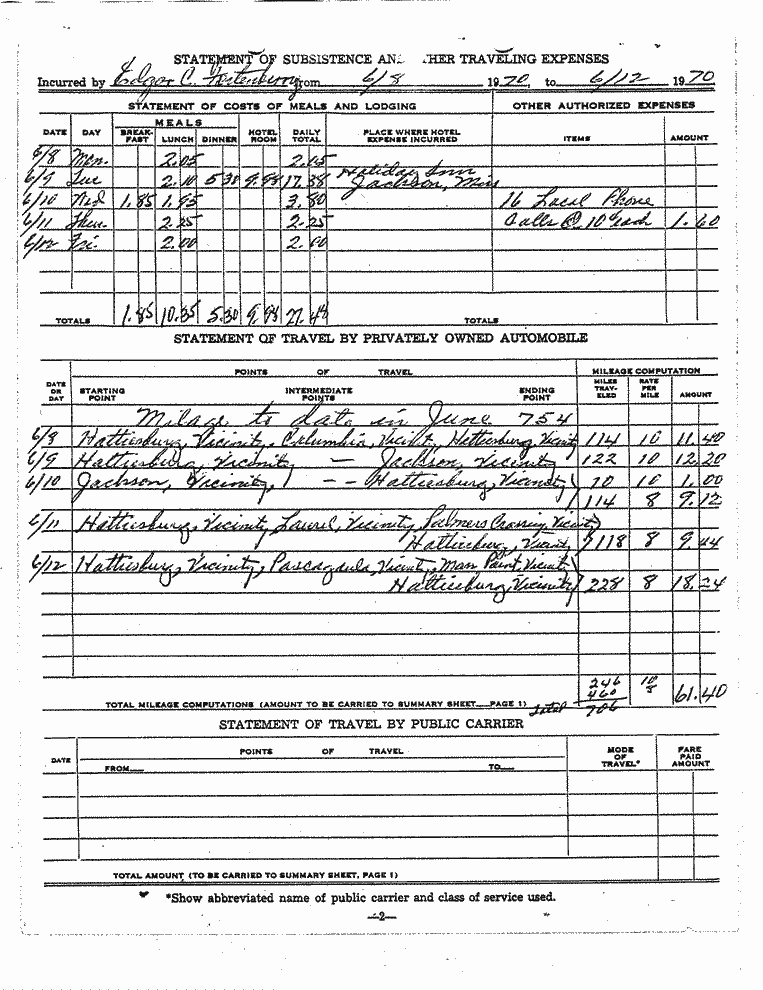 STATEMENT OF SUBSISTENCE AN HER TRAVELING EXPENSES
Incurred by Edgar C. from 6/8 1970, to 6/12 1970
STATEMENT OF COSTS OF MEALS AND LODGING OTHER AUTHORIZED EXPENSES
MEALS
DATE DAY BREAK-FAST LUNCH DINNER HOTEL ROOM DAILY TOTAL PLACE WHERE HOTEL EXPENSE INCURRED ITEMS AMOUNT
6/8 Mon. 2.05 2.05
6/9 Tue 2.10 5.30 9.98 17.38 Holiday Inn Jackson, Miss
6/10 Wed 1.85 1.95 3.80 16 Local Phone
6/11 Thur. 2.25 2.25 Calls @ 10¢ each 1.60
6/12 Fri. 2.00 2.00
TOTALS 1.85 10.35 5.30 9.98 27.48 TOTALS
STATEMENT OF TRAVEL BY PRIVATELY OWNED AUTOMOBILE
POINTS OF TRAVEL MILEAGE COMPUTATION
DATE OR DAY STARTING POINT INTERMEDIATE POINTS ENDING POINT MILES TRAV-ELED RATE PER MILE AMOUNT
Milage to date in June 754
6/8 Hattiesburg, Vicinity, Columbia, Vicinit, Hattiesburg, Vicinity 114 10 11.40
6/9 Hattiesburg, Vicinity — Jackson, Vicinity 122 10 12.20
6/10 Jackson, Vicinity, — — Hattiesburg, Vicinity 10 10 1.00
114 8 9.12
6/11 Hattiesburg, Vicinity, Laurel, Vicinity, Palmers Crossing, Vicinity
Hattiesburg, Vicinity 118 8 9.44
6/12 Hattiesburg, Vicinity, Pascagoula, Vicinit, Moss Point, Vicinity
Hattiesburg, Vicinity 228 8 18.24
246 10
460 8
TOTAL MILEAGE COMPUTATIONS (AMOUNT TO BE CARRIED TO SUMMARY SHEET—PAGE 1) Total 706 61.40
STATEMENT OF TRAVEL BY PUBLIC CARRIER
DATE POINTS OF TRAVEL MODE OF TRAVEL* FARE PAID AMOUNT
FROM— TO—
TOTAL AMOUNT (TO BE CARRIED TO SUMMARY SHEET, PAGE 1)
*Show abbreviated name of public carrier and class of service used.
—2—